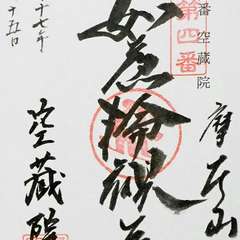 番 空藏院
第四番
摩尼山
如意輪観音
十七年
十五日
空藏院